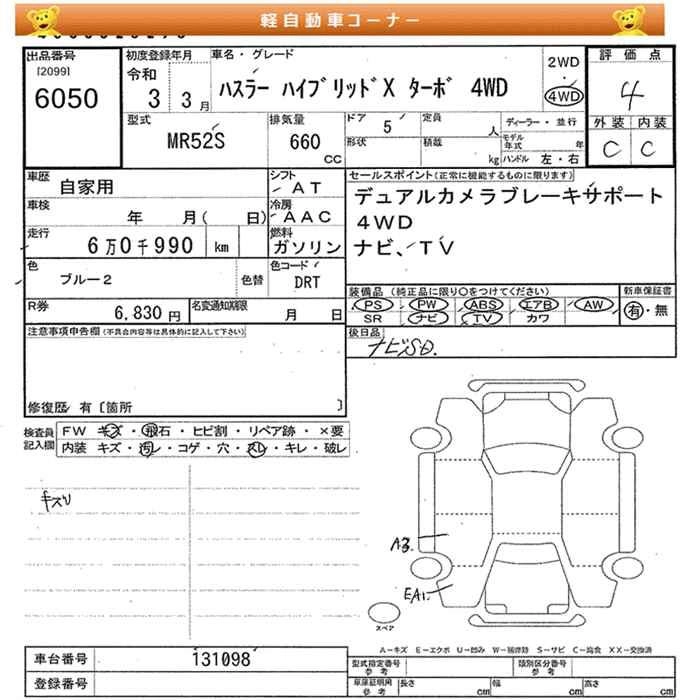 軽自動車コーナー
出品番号
[2099]
6050
初度登録年月
令和
3 3月
車名・グレード
ハスラー ハイブリッドX ターボ 4WD
2WD
4WD
評価点
4
外装 内装
C C
型式
MR52S
排気量
660
cc
ドア
5
形状
定員
人
積載
kg
ディーラー・並行
モデル年式 年
ハンドル 左・右
車歴
自家用
シフト
AT
車検
年 月( 日)
冷房
AAC
走行
6万0千990 km
燃料
ガソリン
色
ブルー2
色替
色コード
DRT
R券
6,830円
名変通知期限
月 日
セールスポイント(正常に機能するものに限ります)
デュアルカメラブレーキサポート
4WD
ナビ、TV
装備品(純正品に限り○をつけてください)
PS PW ABS エアB AW
SR ナビ TV カワ
新車保証書
有・無
後日品
ナビSD.
注意事項申告欄(不具合内容等は具体的に記入して下さい)
修復歴 有〔箇所 〕
検査員記入欄
FW キズ・飛石・ヒビ割・リペア跡・×要
内装 キズ・汚レ・コゲ・穴・スレ・キレ・破レ
キスリ
A3.
EA1.
スペア
A-キズ E-エクボ U-凹み W-補修跡 S-サビ C-腐食 XX-交換済
車台番号
131098
登録番号
型式指定番号
参考
類別区分番号
参考
車庫証明用
参考
長さ cm
幅 cm
高さ cm